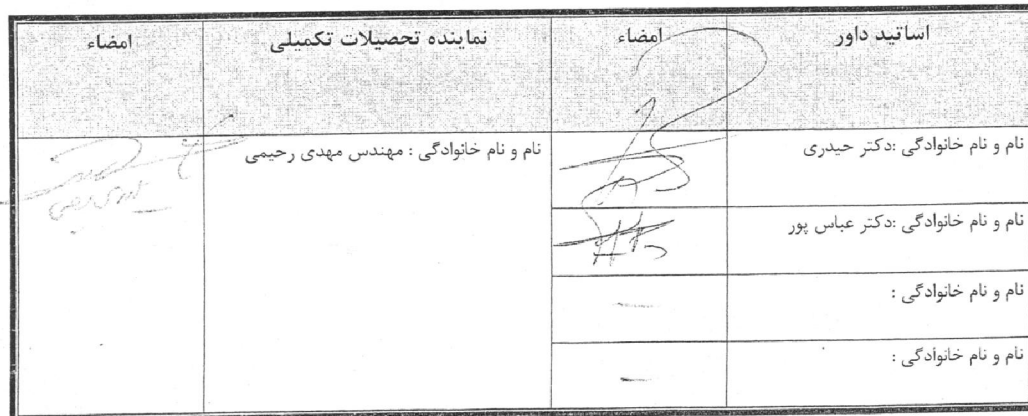 اساتید داور
امضاء
نماینده تحصیلات تکمیلی
امضاء
نام و نام خانوادگی :دکتر حیدری
نام و نام خانوادگی : مهندس مهدی رحیمی
نام و نام خانوادگی :دکتر عباس پور
نام و نام خانوادگی :
نام و نام خانوادگی :